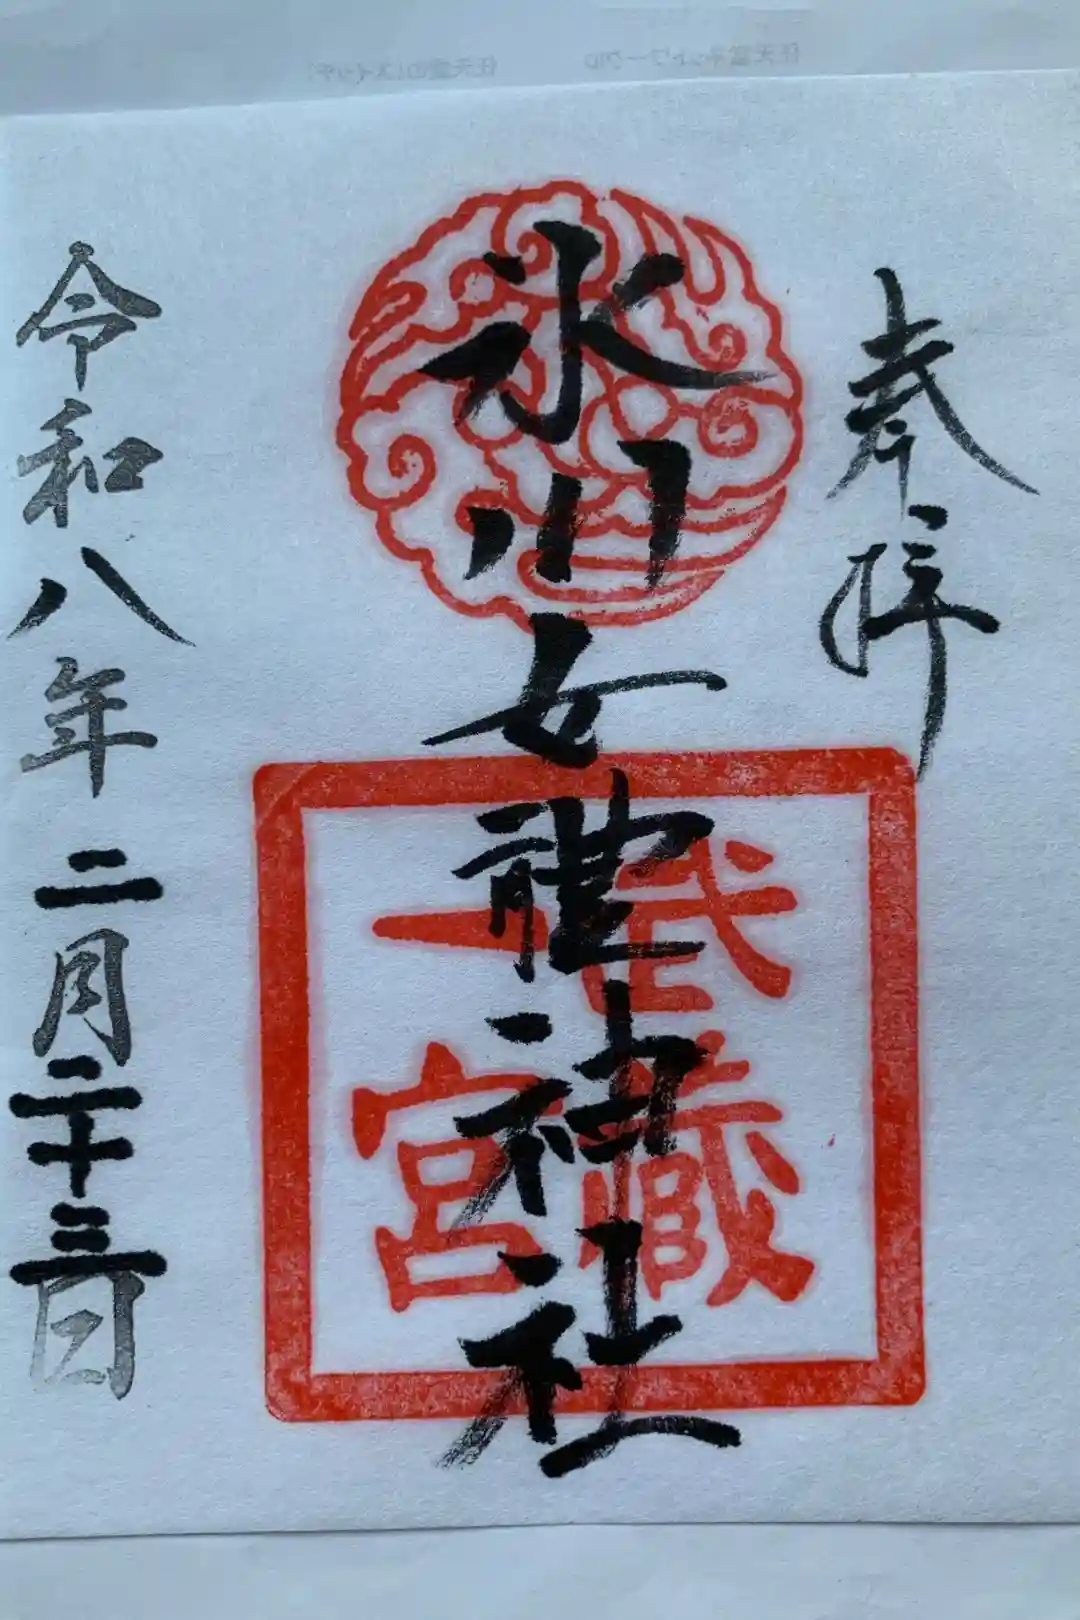 奉拝
氷川女體神社
武蔵
一宮
令和八年二月二十三日